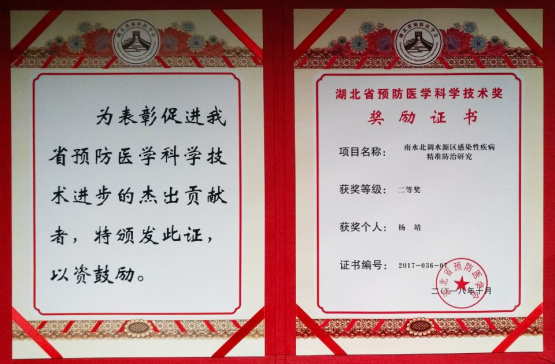 为表彰促进我
省预防医学科学技
术进步的杰出贡献
者，特颁发此证，
以资鼓励。
湖北省预防医学科学技术奖
奖励证书
项目名称：南水北调水源区感染性疾病
精准防治研究
获奖等级：二等奖
获奖个人：杨靖
证书编号：2017-036-07
二〇一八年十月
湖北省预防医学会